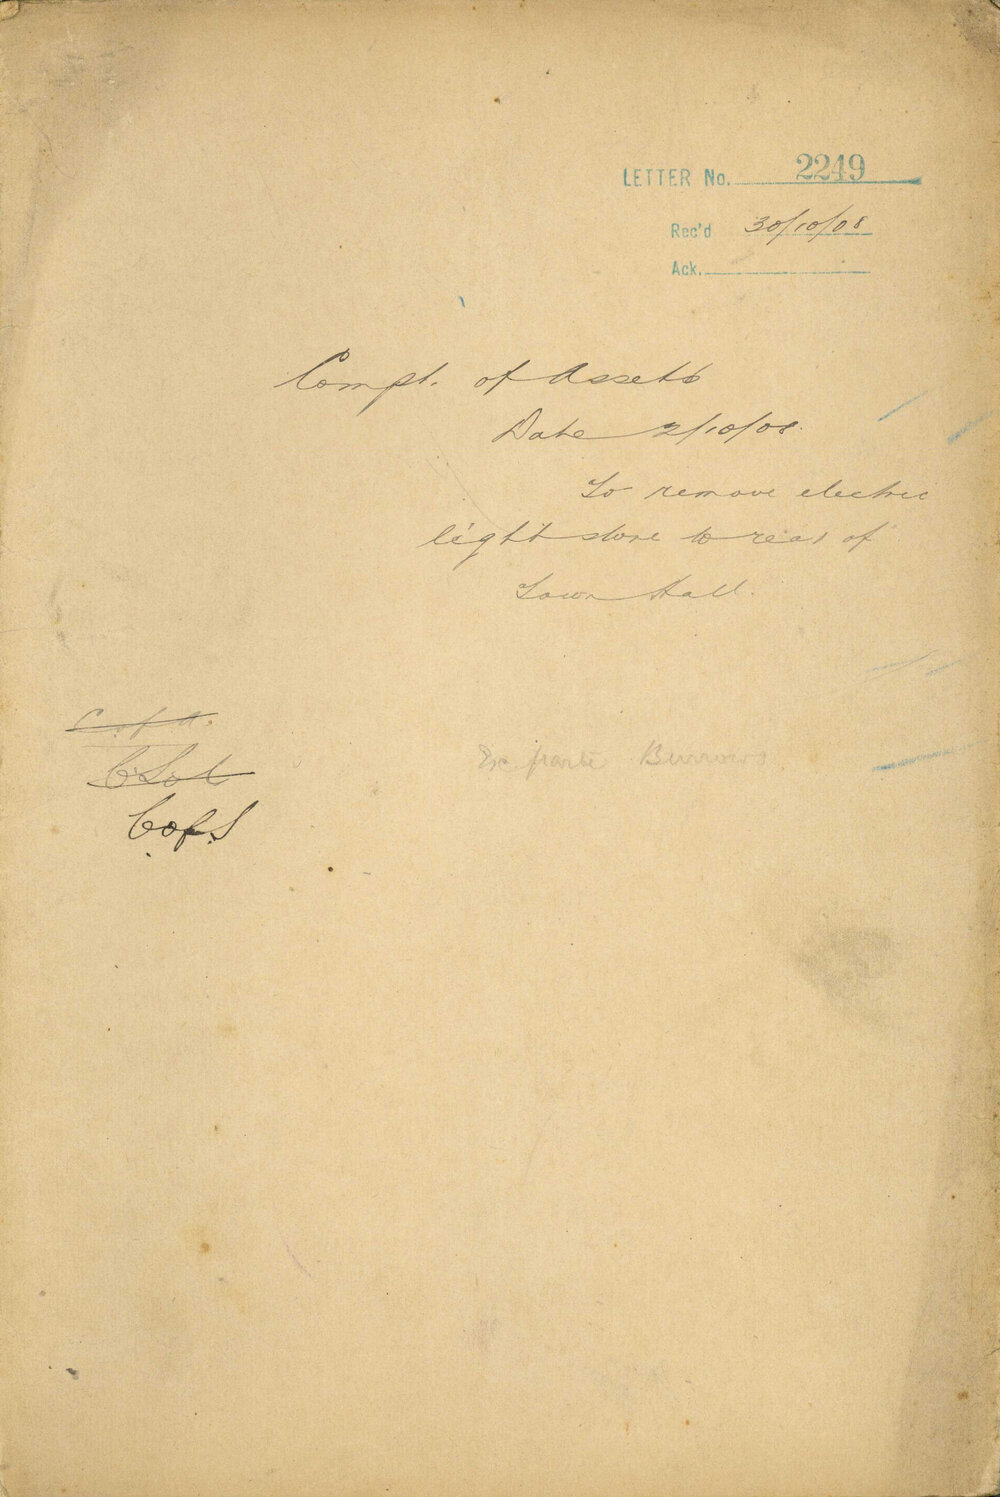 LETTER No. 2249
Rec'd 30/10/08
Ack.
Compt. of Assets
Date 2/10/08.
To remove electric
light store to rear of
Town Hall.
C. of A.
Ex parte Burrows
C. of S